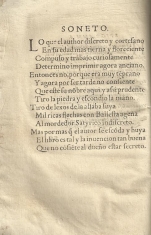 SONETO.
LO que el author discreto y cortesano
En su edad mas tierna y floreciente
Compuso y trabajo curiosamente
Determino imprimir agora anciano.
Entonces no, porque era muy temprano
Y agora por ser tarde no consiente
Que aste su nõbre aqui y assi prudente
Tiro la piedra y escondio la mano.
Tiro de lexos de la
Mil ricas flechas con
Al mordedor Satyrico indiscreto.
Mas por mas q̃ el author se escõda y huya
El libro es tal y la intencion tan buena
Que no cosiete al dueño estar secreto.